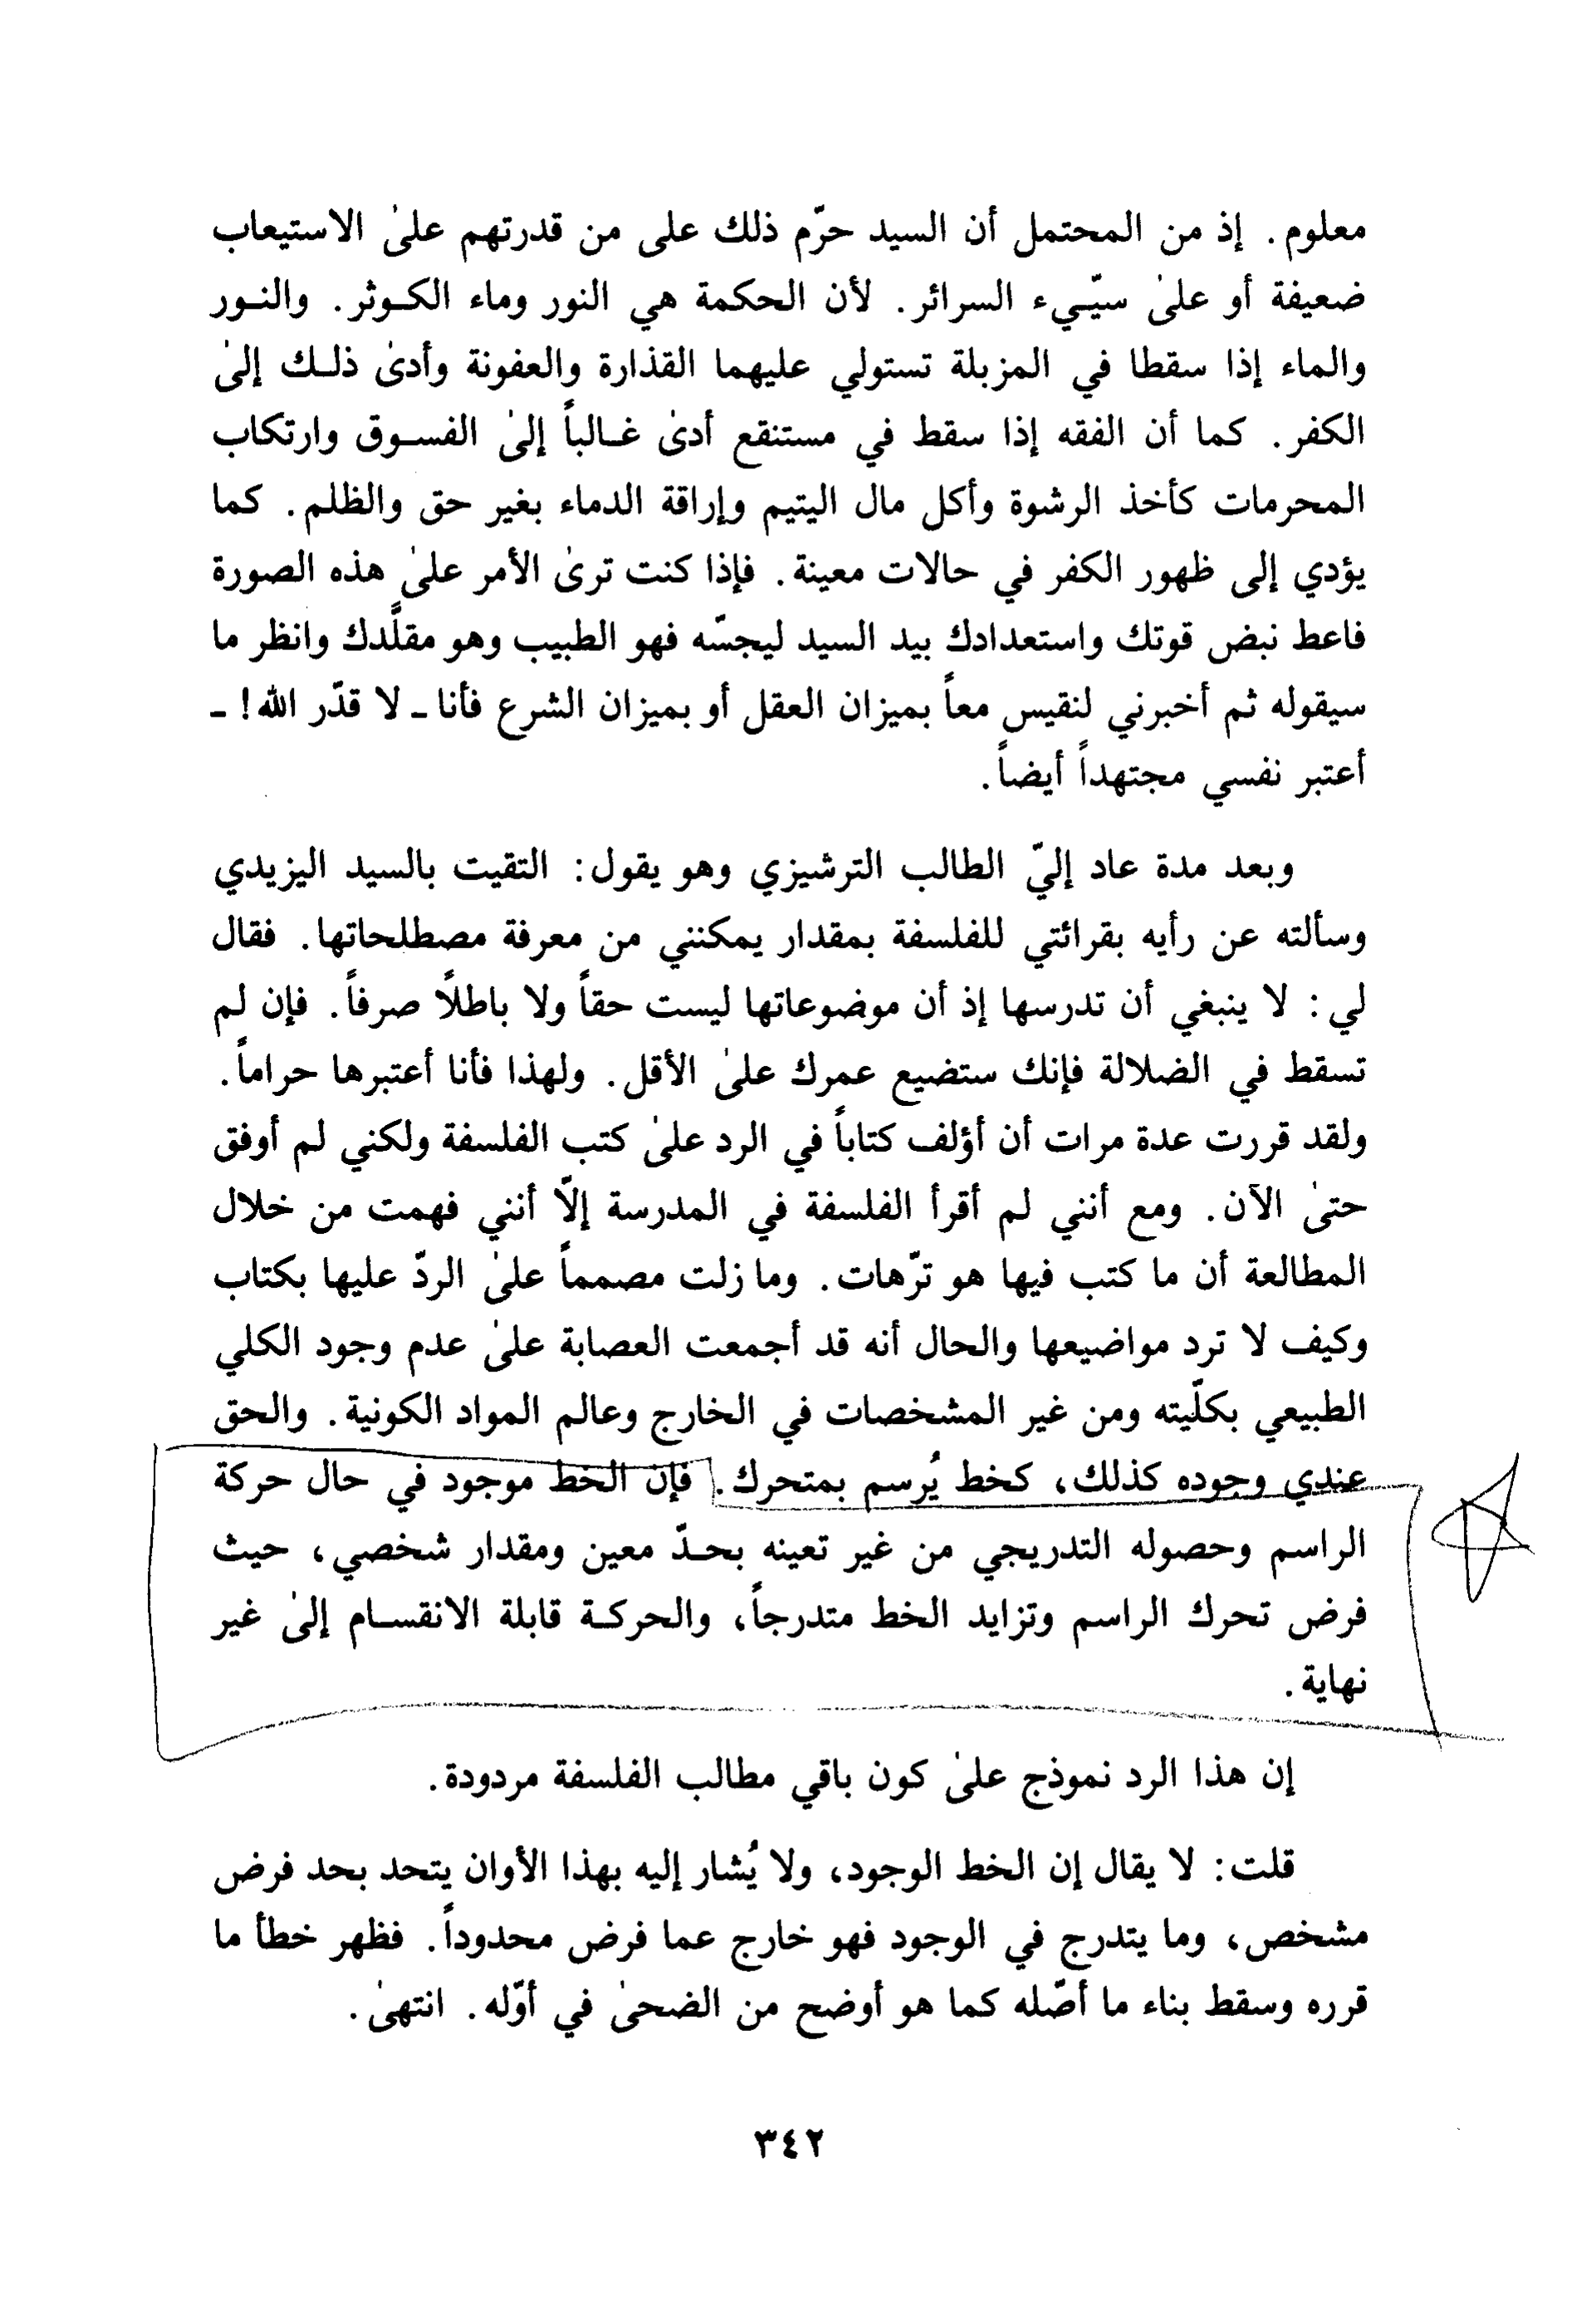 معلوم. إذ من المحتمل أن السيد حرّم ذلك على من قدرتهم علىٰ الاستيعاب
ضعيفة أو علىٰ سيّـيء السرائر. لأن الحكمة هي النور وماء الكـوثر. والنـور
والماء إذا سقطا في المزبلة تستولي عليهما القذارة والعفونة وأدىٰ ذلـك إلىٰ
الكفر. كما أن الفقه إذا سقط في مستنقع أدىٰ غـالباً إلىٰ الفسـوق وارتكاب
المحرمات كأخذ الرشوة وأكل مال اليتيم وإراقة الدماء بغير حق والظلم. كما
يؤدي إلى ظهور الكفر في حالات معينة. فإذا كنت ترىٰ الأمر علىٰ هذه الصورة
فاعط نبض قوتك واستعدادك بيد السيد ليجسّه فهو الطبيب وهو مقلَّدك وانظر ما
سيقوله ثم أخبرني لنقيس معاً بميزان العقل أو بميزان الشرع فأنا ـ لا قدّر الله! ـ
أعتبر نفسي مجتهداً أيضاً.
وبعد مدة عاد إليّ الطالب الترشيزي وهو يقول: التقيت بالسيد اليزيدي
وسألته عن رأيه بقرائتي للفلسفة بمقدار يمكنني من معرفة مصطلحاتها. فقال
لي: لا ينبغي أن تدرسها إذ أن موضوعاتها ليست حقاً ولا باطلاً صرفاً. فإن لم
تسقط في الضلالة فإنك ستضيع عمرك علىٰ الأقل. ولهذا فأنا أعتبرها حراماً.
ولقد قررت عدة مرات أن أؤلف كتاباً في الرد علىٰ كتب الفلسفة ولكني لم أوفق
حتىٰ الآن. ومع أنني لم أقرأ الفلسفة في المدرسة إلاّ أنني فهمت من خلال
المطالعة أن ما كتب فيها هو ترّهات. وما زلت مصمماً علىٰ الردّ عليها بكتاب
وكيف لا ترد مواضيعها والحال أنه قد أجمعت العصابة علىٰ عدم وجود الكلي
الطبيعي بكلّيته ومن غير المشخصات في الخارج وعالم المواد الكونية. والحق
عندي وجوده كذلك، كخط يُرسم بمتحرك. فإن الخط موجود في حال حركة
الراسم وحصوله التدريجي من غير تعينه بحـدّ معين ومقدار شخصي، حيث
فرض تحرك الراسم وتزايد الخط متدرجاً، والحركـة قابلة الانقسـام إلىٰ غير
نهاية.
إن هذا الرد نموذج علىٰ كون باقي مطالب الفلسفة مردودة.
قلت: لا يقال إن الخط الوجود، ولا يُشار إليه بهذا الأوان يتحد بحد فرض
مشخص، وما يتدرج في الوجود فهو خارج عما فرض محدوداً. فظهر خطأ ما
قرره وسقط بناء ما أصّله كما هو أوضح من الضحىٰ في أوّله. انتهىٰ.
٣٤٢